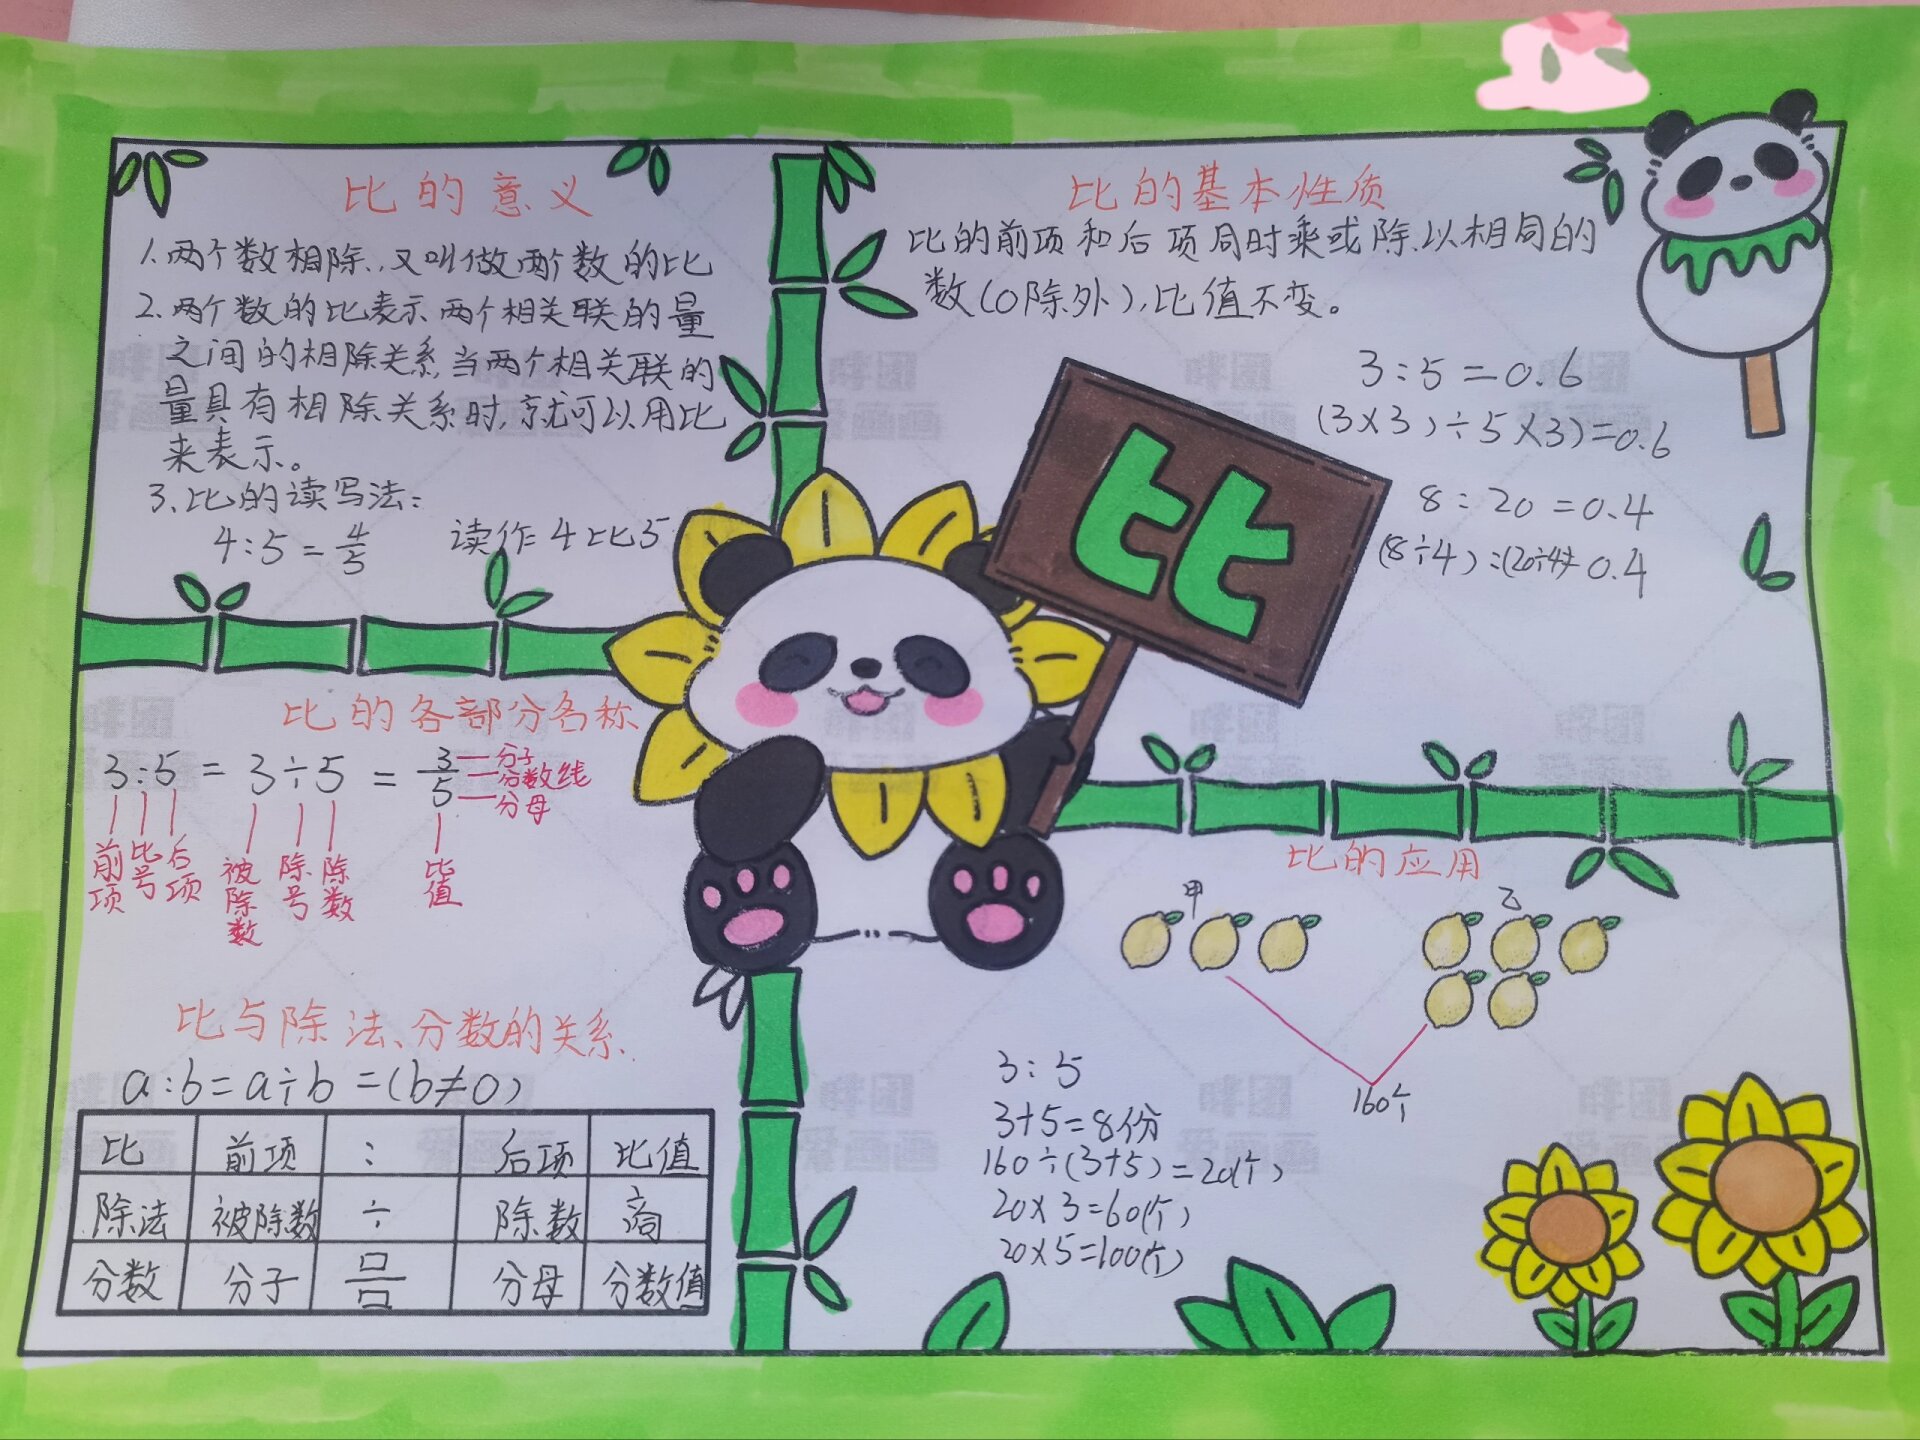 比的意义
1.两个数相除,又叫做两个数的比
2.两个数的比表示两个相关联的量
之间的相除关系,当两个相关联的
量具有相除关系时,就可以用比
来表示。
3.比的读写法:
4:5=4/5 读作4比5
比的基本性质
比的前项和后项同时乘或除以相同的
数(0除外),比值不变。
3:5=0.6
(3×3)÷5×3)=0.6
8:20=0.4
(8÷4):(20÷4)=0.4
比
比的各部分名称
3:5=3÷5=3/5
分子
分数线
分母
前项 比号 后项 被除数 除号 除数 比值
比与除法、分数的关系
a:b=a÷b=(b≠0)
比 前项 : 后项 比值
除法 被除数 ÷ 除数 商
分数 分子 口/口 分母 分数值
比的应用
甲 乙
160个
3:5
3+5=8份
160÷(3+5)=20(个)
20×3=60(个)
20×5=100(个)